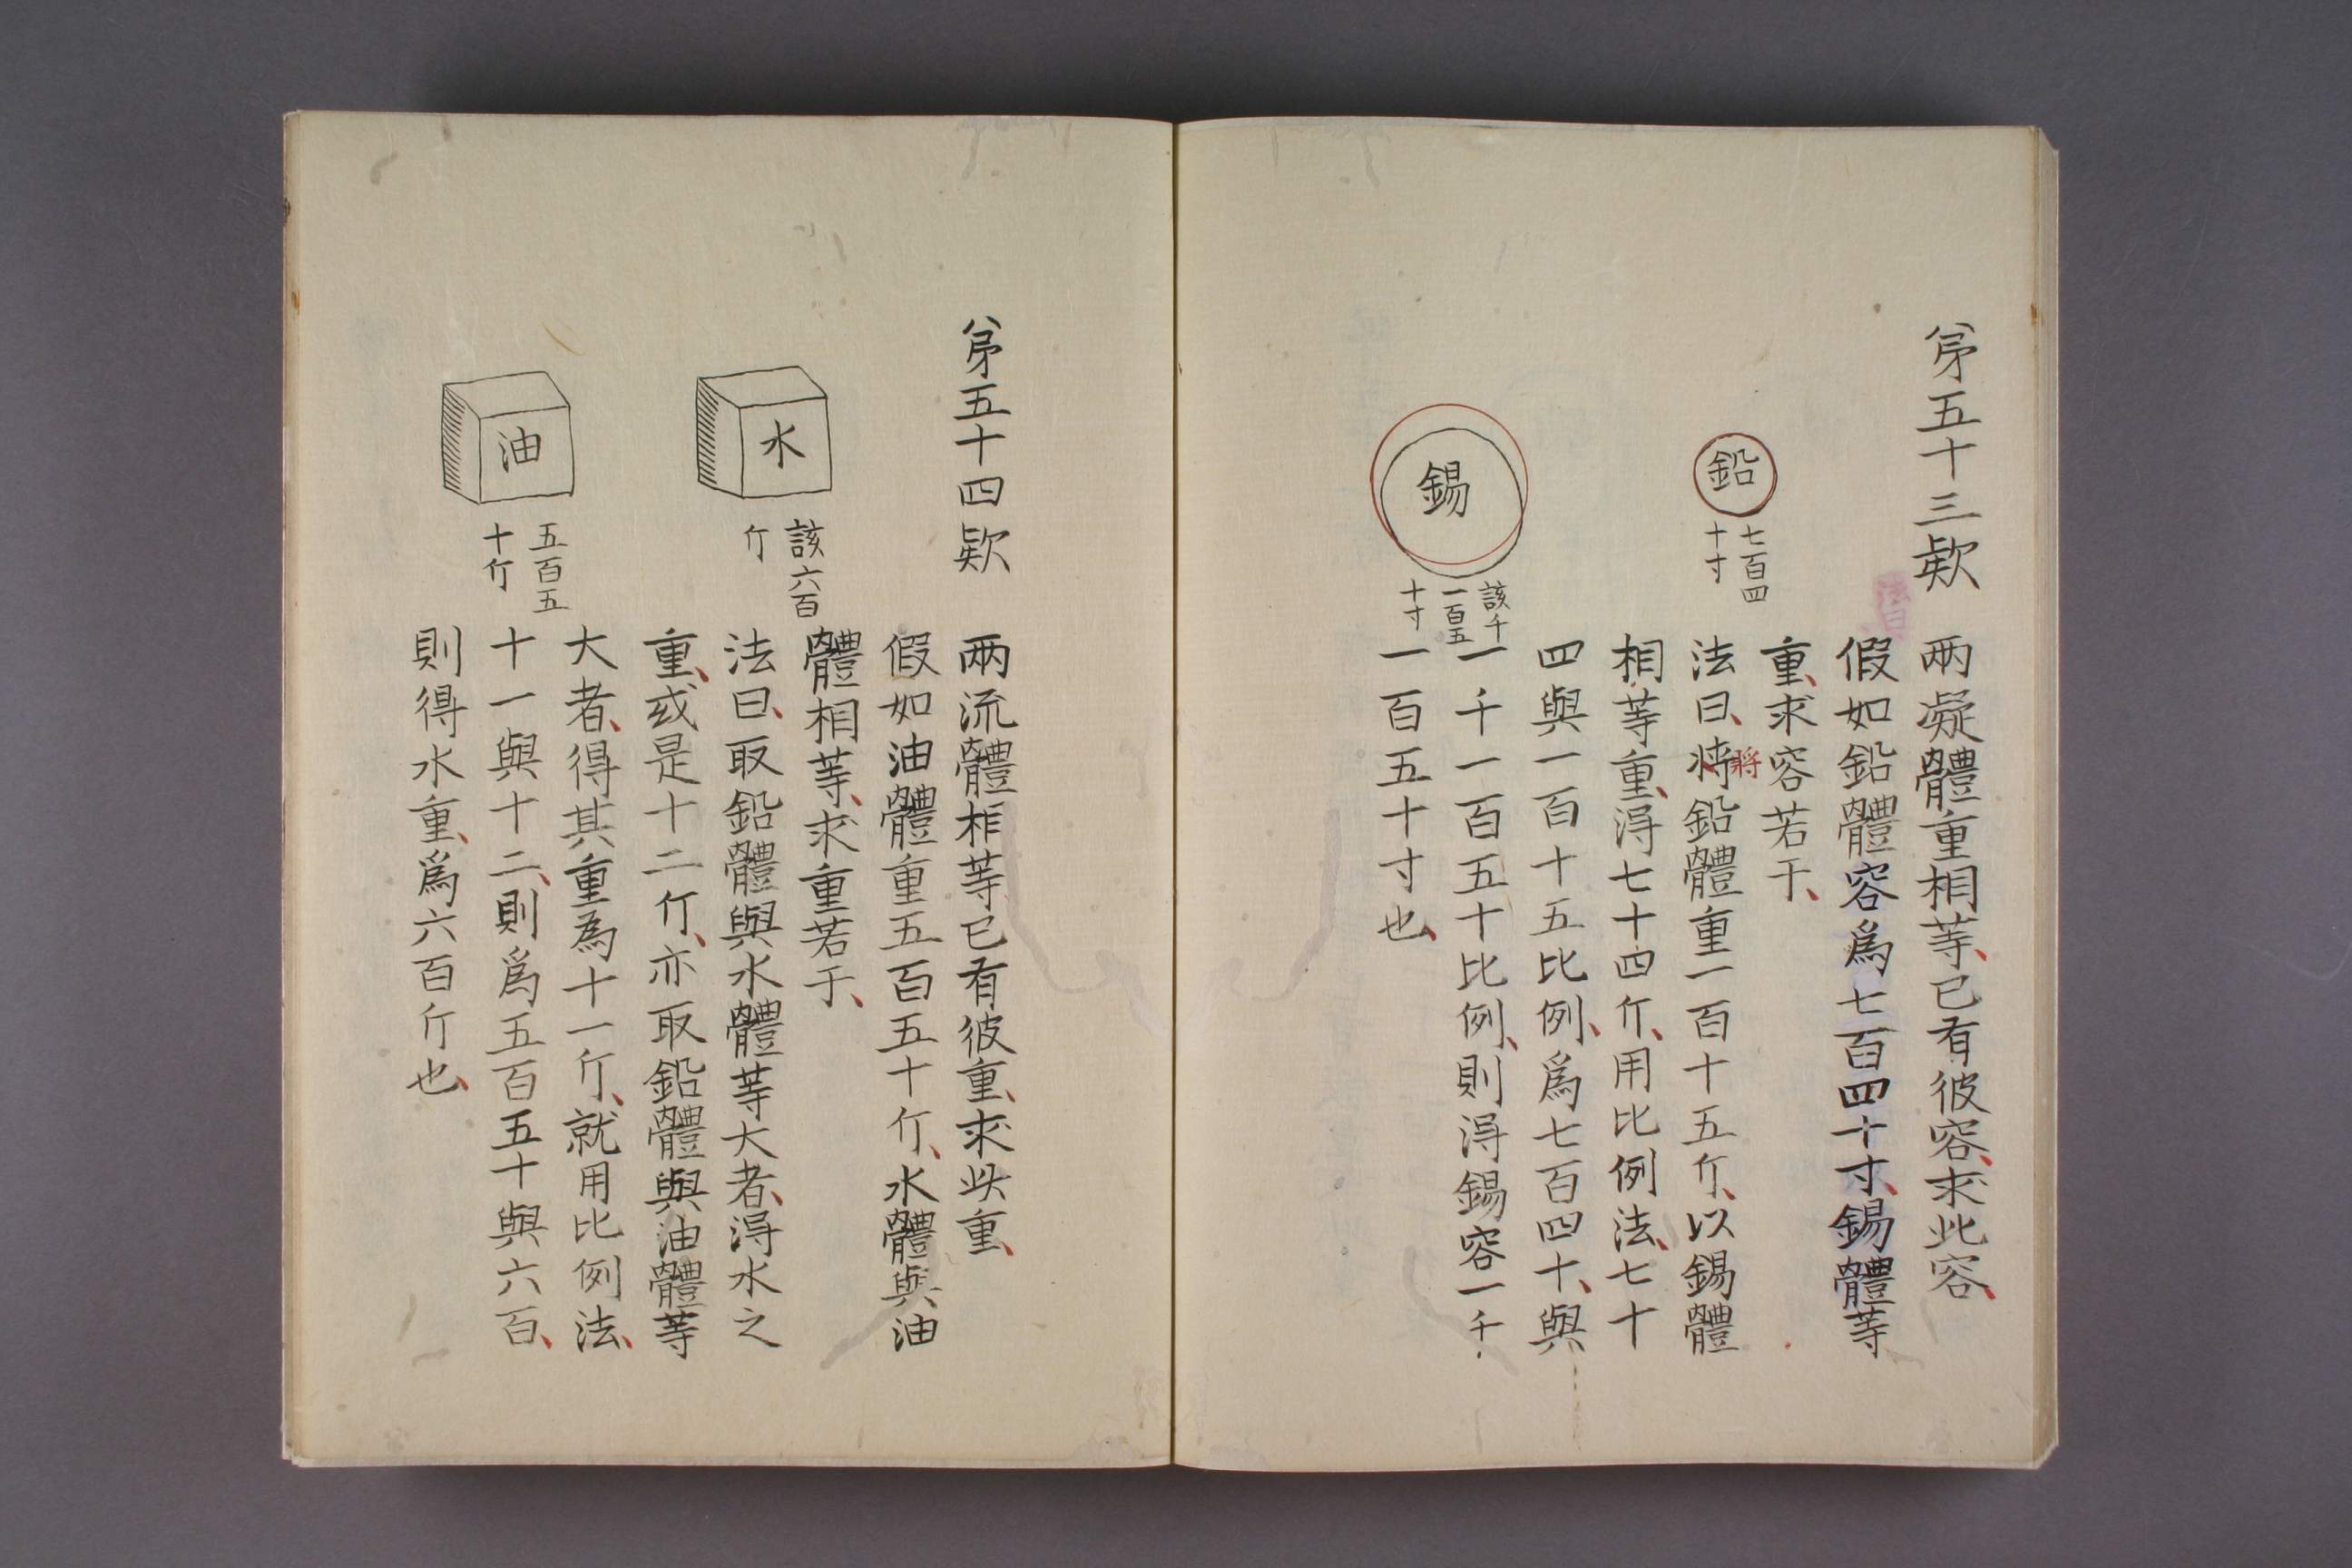 第五十三款
兩凝體重相等已有彼容求此容
假如鉛體容爲七百四十寸錫體等
重求容若干
法曰將鉛體重一百十五斤以錫體
將
相等重得七十四斤用比例法七十
四與一百十五比例爲七百四十與
一千一百五十比例則得錫容一千
一百五十寸也
鉛
七百四
十寸
錫
該千
一百五
十寸
第五十四款
兩流體相等已有彼重求此重
假如油體重五百五十斤水體與油
體相等求重若干
法曰取鉛體與水體等大者得水之
重或是十二斤亦取鉛體與油體等
大者得其重為十一斤就用比例法
十一與十二則爲五百五十與六百
則得水重爲六百斤也
水
該六百
斤
油
五百五
十斤